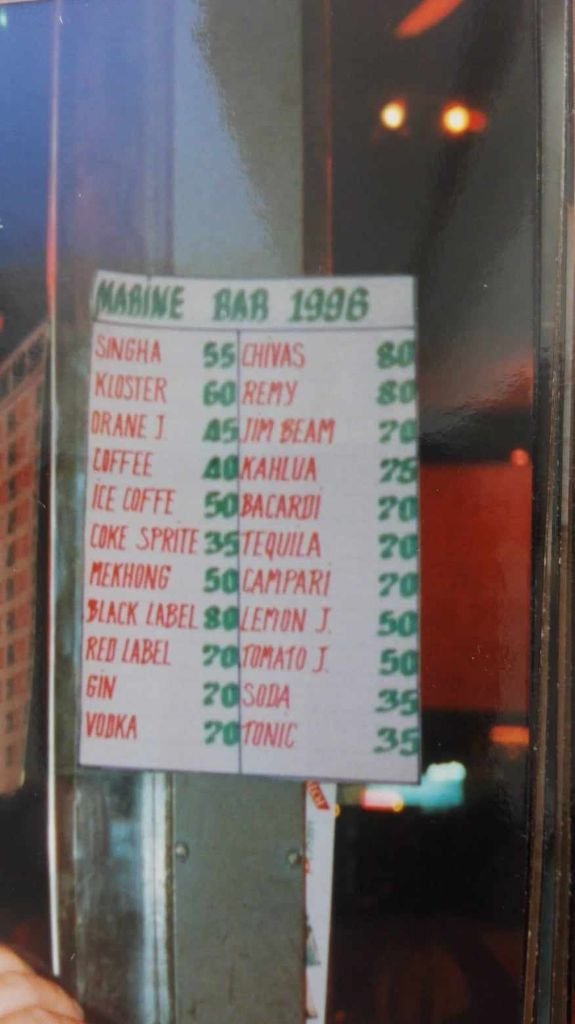 MARINE BAR 1996
SINGHA 55 CHIVAS 80
KLOSTER 60 REMY 80
ORANE J. 45 JIM BEAM 70
COFFEE 40 KAHLUA 75
ICE COFFE 50 BACARDI 70
COKE SPRITE 35 TEQUILA 70
MEKHONG 50 CAMPARI 70
BLACK LABEL 80 LEMON J. 50
RED LABEL 70 TOMATO J. 50
GIN 70 SODA 35
VODKA 70 TONIC 35